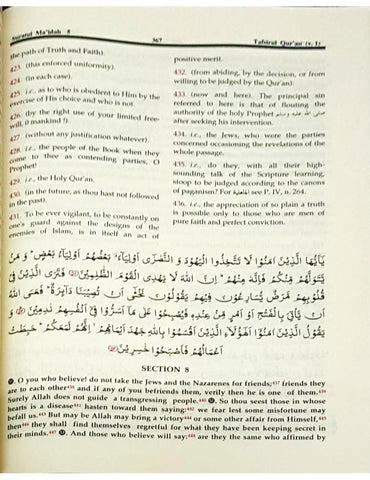 Suratul Ma'idah 5
367
Tafsirul Qur'an (v. 1)
the path of Truth and Faith).
423. (this enforced uniformity).
424. (in each case).
425. i.e., as to who is obedient to Him by the
exercise of His choice and who is not.
426. (by the right use of your limited free-
will, O mankind !).
427. (without any justification whatever).
428. i.e., the people of the Book when they
come to thee as contending parties, O
Prophet!
429. i.e., the Holy Qur'an.
430. (in the future, as thou hast followed
in the past).
431. To be ever vigilant, to be constantly on
one's guard against the designs of the
enemies of Islam, is in itself an act of
positive merit.
432. (from abiding, by the decision, or from
willing to be judged by the Qur'an).
433. (now and here). The principal sin
referred to here is that of flouting the
authority of the holy Prophet صلى الله عليه وسلم
after seeking his intervention.
434. i.e., the Jews, who were the parties
concerned occasioning the revelations of the
whole passage.
435. i.e., do they, with all their high-
sounding talk of the Scripture learning,
stoop to be judged according to the canons
of paganism? For الجاهلية see P. IV, n. 264.
436. i.e., the appreciation of so plain a truth
is possible only to those who are men of
pure faith and perfect conviction.
يٰٓاَيُّهَا الَّذِيْنَ اٰمَنُوْا لَا تَتَّخِذُوا الْيَهُوْدَ وَ النَّصٰرٰٓى اَوْلِيَآءَ ۘ بَعْضُهُمْ اَوْلِيَآءُ بَعْضٍ ؕ وَ مَنْ
يَّتَوَلَّهُمْ مِّنْكُمْ فَاِنَّهٗ مِنْهُمْ ؕ اِنَّ اللّٰهَ لَا يَهْدِى الْقَوْمَ الظّٰلِمِيْنَ فَتَرَى الَّذِيْنَ فِىْ
قُلُوْبِهِمْ مَّرَضٌ يُّسَارِعُوْنَ فِيْهِمْ يَقُوْلُوْنَ نَخْشٰٓى اَنْ تُصِيْبَنَا دَآئِرَةٌ ؕ فَعَسَى اللّٰهُ
اَنْ يَّاْتِىَ بِالْفَتْحِ اَوْ اَمْرٍ مِّنْ عِنْدِهٖ فَيُصْبِحُوْا عَلٰى مَآ اَسَرُّوْا فِىْٓ اَنْفُسِهِمْ نٰدِمِيْنَ
يَقُوْلُ الَّذِيْنَ اٰمَنُوْٓا اَهٰٓؤُلَآءِ الَّذِيْنَ اَقْسَمُوْا بِاللّٰهِ جَهْدَ اَيْمَانِهِمْ ۙ اِنَّهُمْ لَمَعَكُمْ ؕ حَبِطَتْ
اَعْمَالُهُمْ فَاَصْبَحُوْا خٰسِرِيْنَ
SECTION 8
O you who believe! do not take the Jews and the Nazarenes for friends;437 friends they
are to each other438 and if any of you befriends them, verily then he is one of them.439
Surely Allah does not guide a transgressing people.440 So thou seest those in whose
hearts is a disease441 hasten toward them saying:442 we fear lest some misfortune may
befall us.443 But may be Allah may bring a victory444 or some other affair from Himself,445
then446 they shall find themselves regretful for what they have been keeping secret in
their minds.447 And those who believe will say:448 are they the same who affirmed by